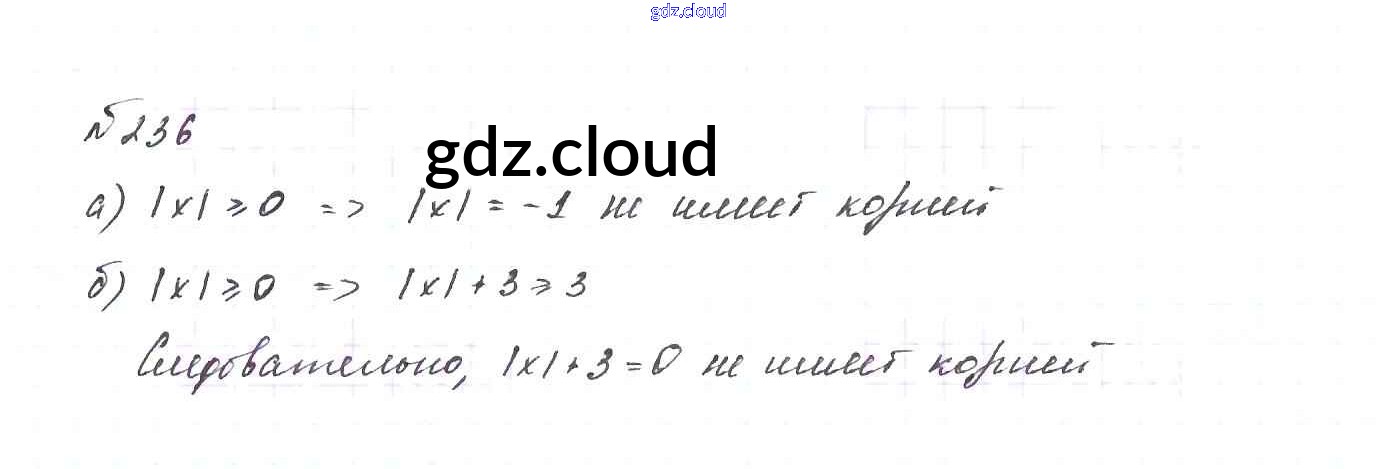 gdz.cloud
№236
gdz.cloud
а) |x| ⩾ 0 => |x| = -1 не имеет корней
б) |x| ⩾ 0 => |x| + 3 ⩾ 3
Следовательно, |x| + 3 = 0 не имеет корней